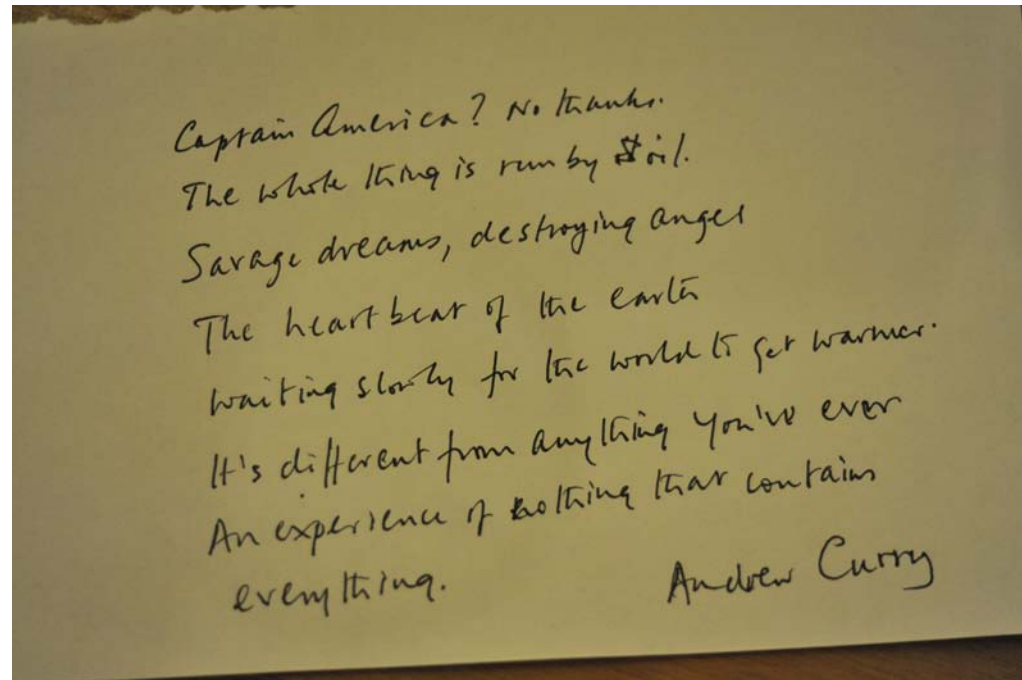 Captain America? No thanks.
The whole thing is run by oil.
Savage dreams, destroying angel
The heartbeat of the earth
waiting slowly for the world to get warmer.
It's different from anything you've ever
An experience of nothing that contains
everything.
Andrew Curry